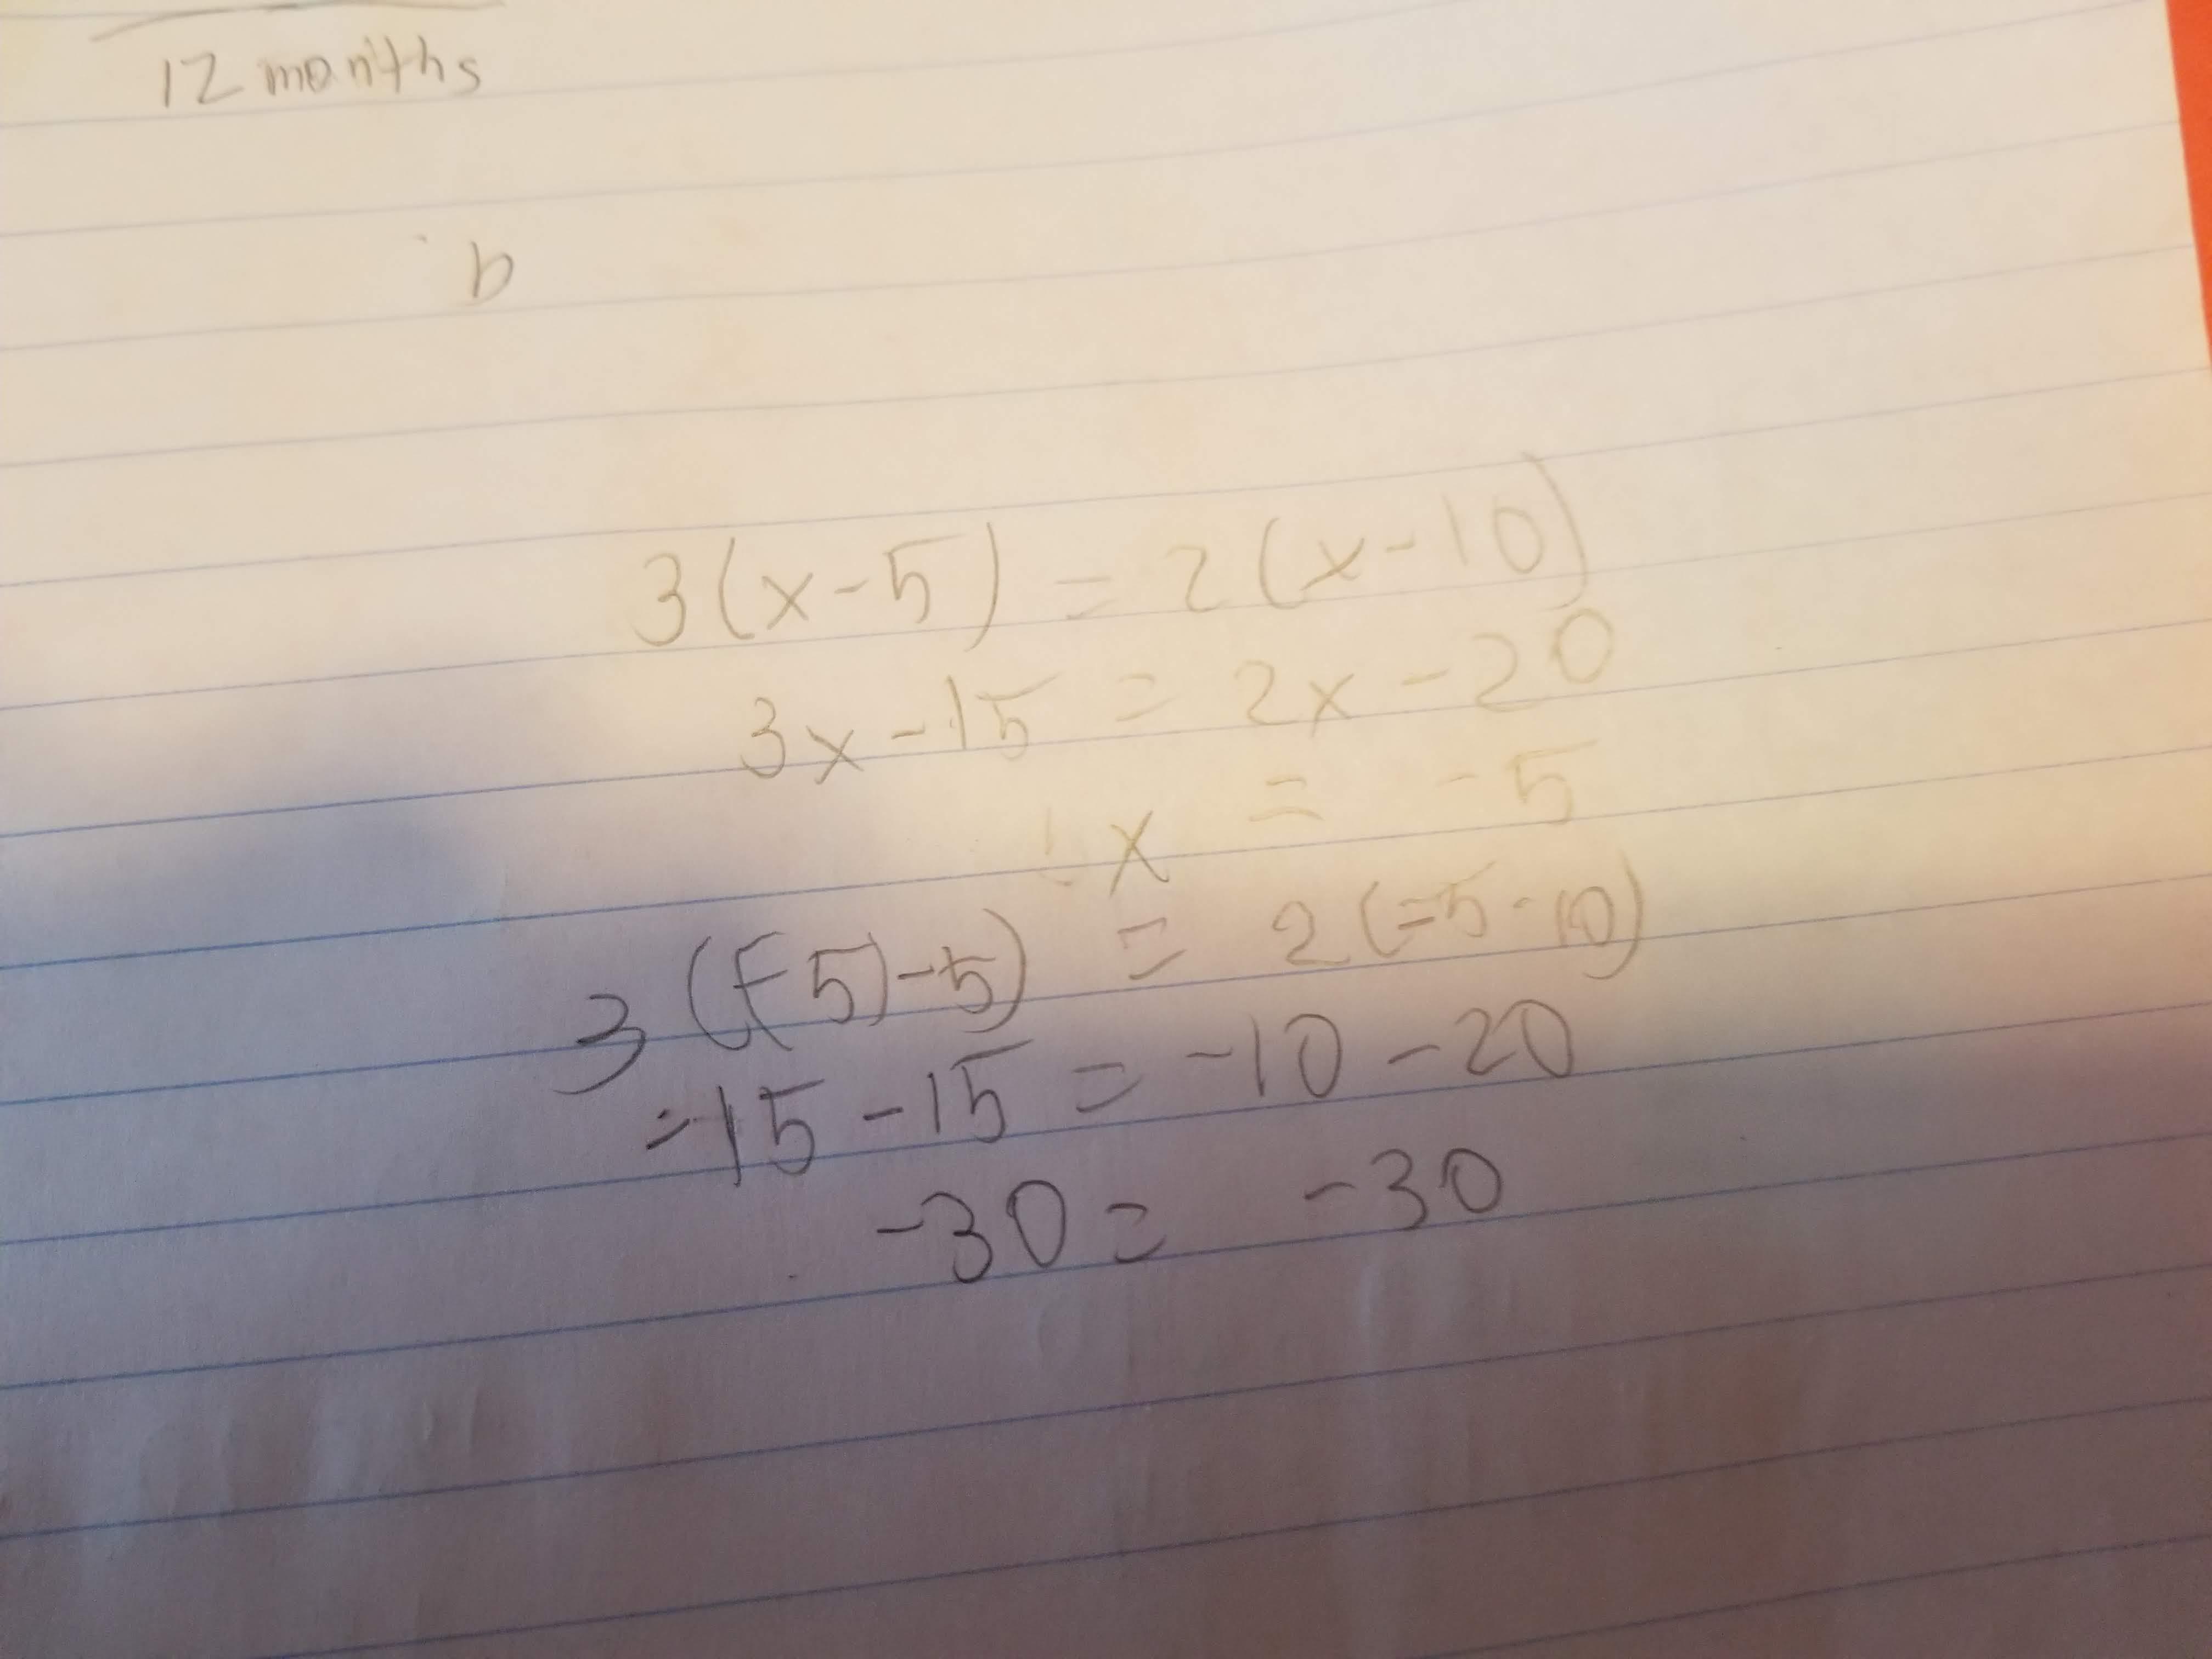 12 months
b
3(x-5) = 2(x-10)
3x-15 = 2x-20
x = -5
3((-5)-5) = 2(-5-10)
-15-15 = -10-20
-30 = -30